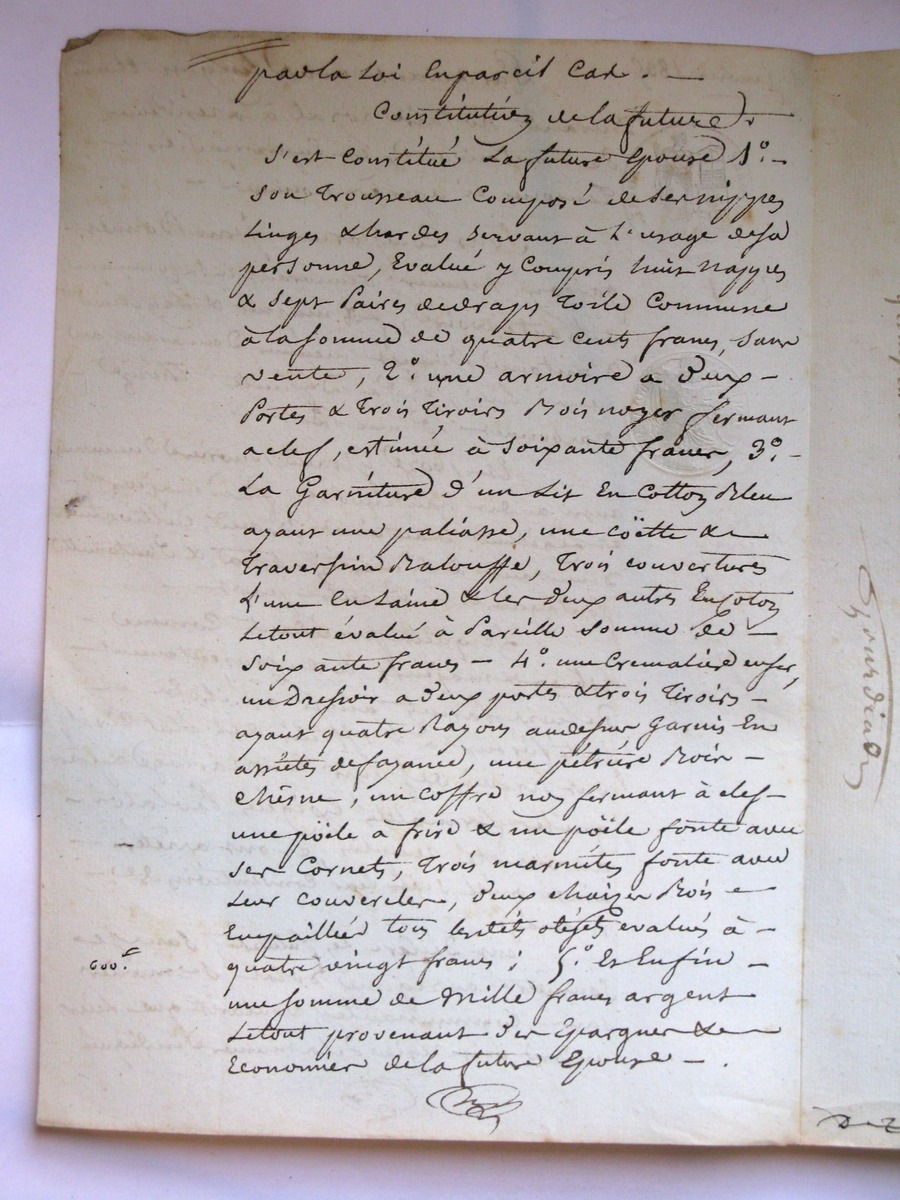 par la Loi En pareil Cas. —
Constitution de la future.
S'est Constitué La future Epouse 1°. —
Son Trousseau Composé de ses nippes
Linges & hardes servant à L'usage de sa
personne, Evalué y Compris huit nappes
& Sept Paires de draps Toile Commune
à la somme de quatre cents francs, sans
vente, 2°. une armoire a deux —
Portes & Trois Tiroirs Bois noyer fermant
a clef, estimée à Soixante francs, 3°. —
La Garniture d'un Lit En Cotton Bleu
ayant une paliasse, une coëtte &
Traversin Balouffe, Trois couvertures
L'une En Laine & les deux autres En coton
Le tout évalué à Pareille Somme de —
Soixante francs — 4°. une Crémalière en fer,
un Dressoir a deux portes & trois Tiroirs —
ayant quatre Rayons au dessus Garnis En
assiètes de fayance, une pétrière Bois —
Chêsne, un coffre noy fermant à clef —
une poële à frire & un poële fonte avec
ses Cornets, Trois marmites fonte avec
Leur couvercles, deux chaises Bois —
Empaillées tous les dits objets evalués à —
quatre vingt francs; 5°. Et Enfin —
600f.
une somme de Mille francs argent
Le tout provenant des Epargnes &
Economies de la future Epouse — .